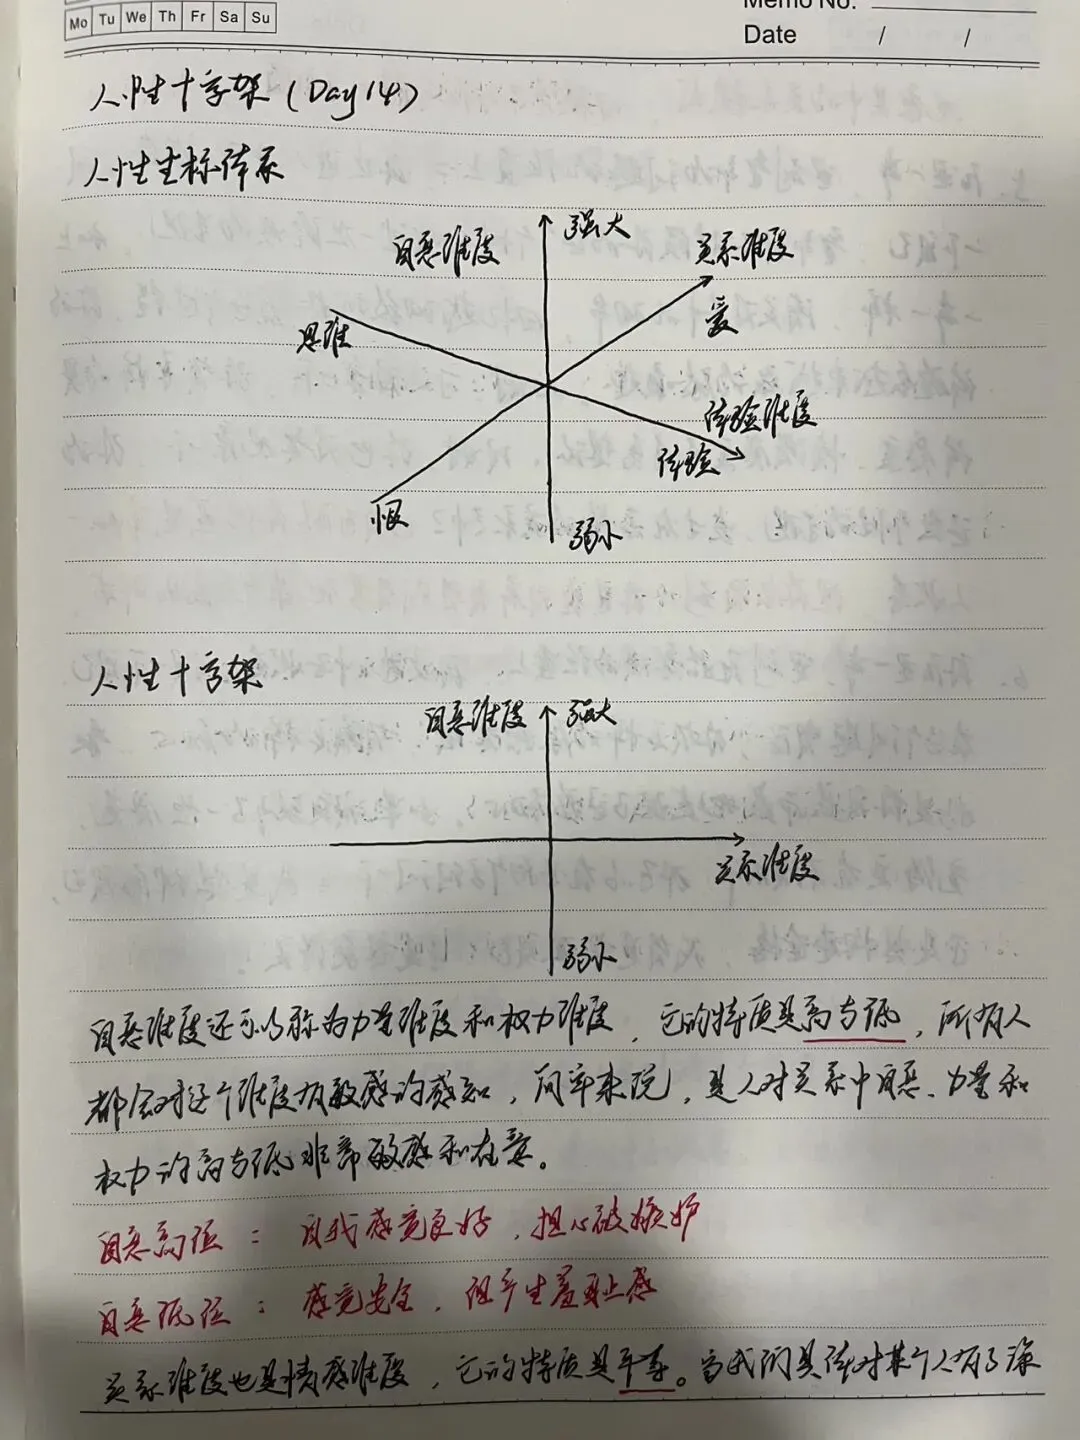 Mo Tu We Th Fr Sa Su
Memo No.
Date / /
人性十字架(Day 14)
人性坐标体系
自恋维度 强大 关系维度
思维 爱
体验维度
体验
恨 弱小
人性十字架
自恋维度 强大
关系维度
弱小
自恋维度还可以称为力量维度和权力维度,它的特质是高与低,所有人
都会对这个维度有敏感的感知,简单来说,是人对关系中自恋、力量和
权力的高与低非常敏感和在意。
自恋高位:自我感觉良好,担心被嫉妒
自恋低位:感觉安全,但产生羞耻感
关系维度也是情感维度,它的特质是平等。当我们具体对某个人有了深